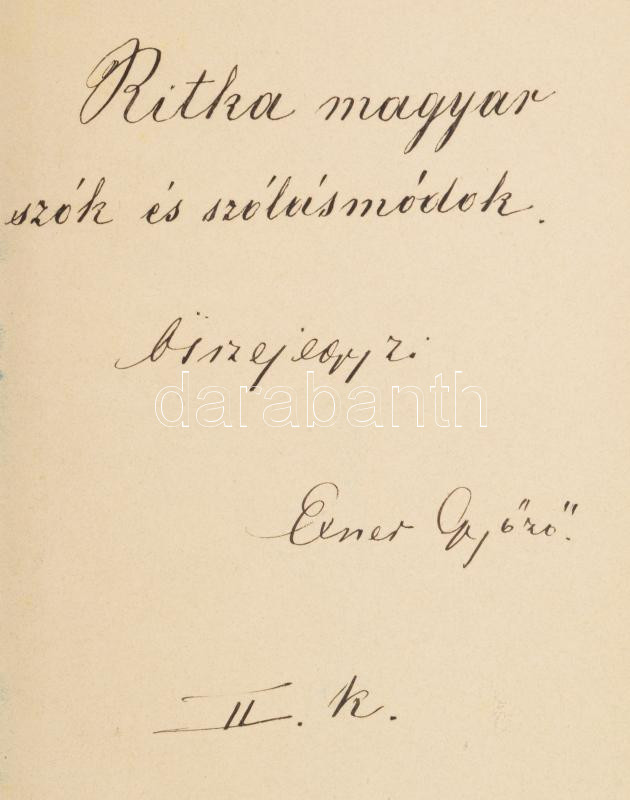 Ritka magyar
szók és szólásmódok.
Összejegyzi
darabanth
Exner Győző.
II. k.